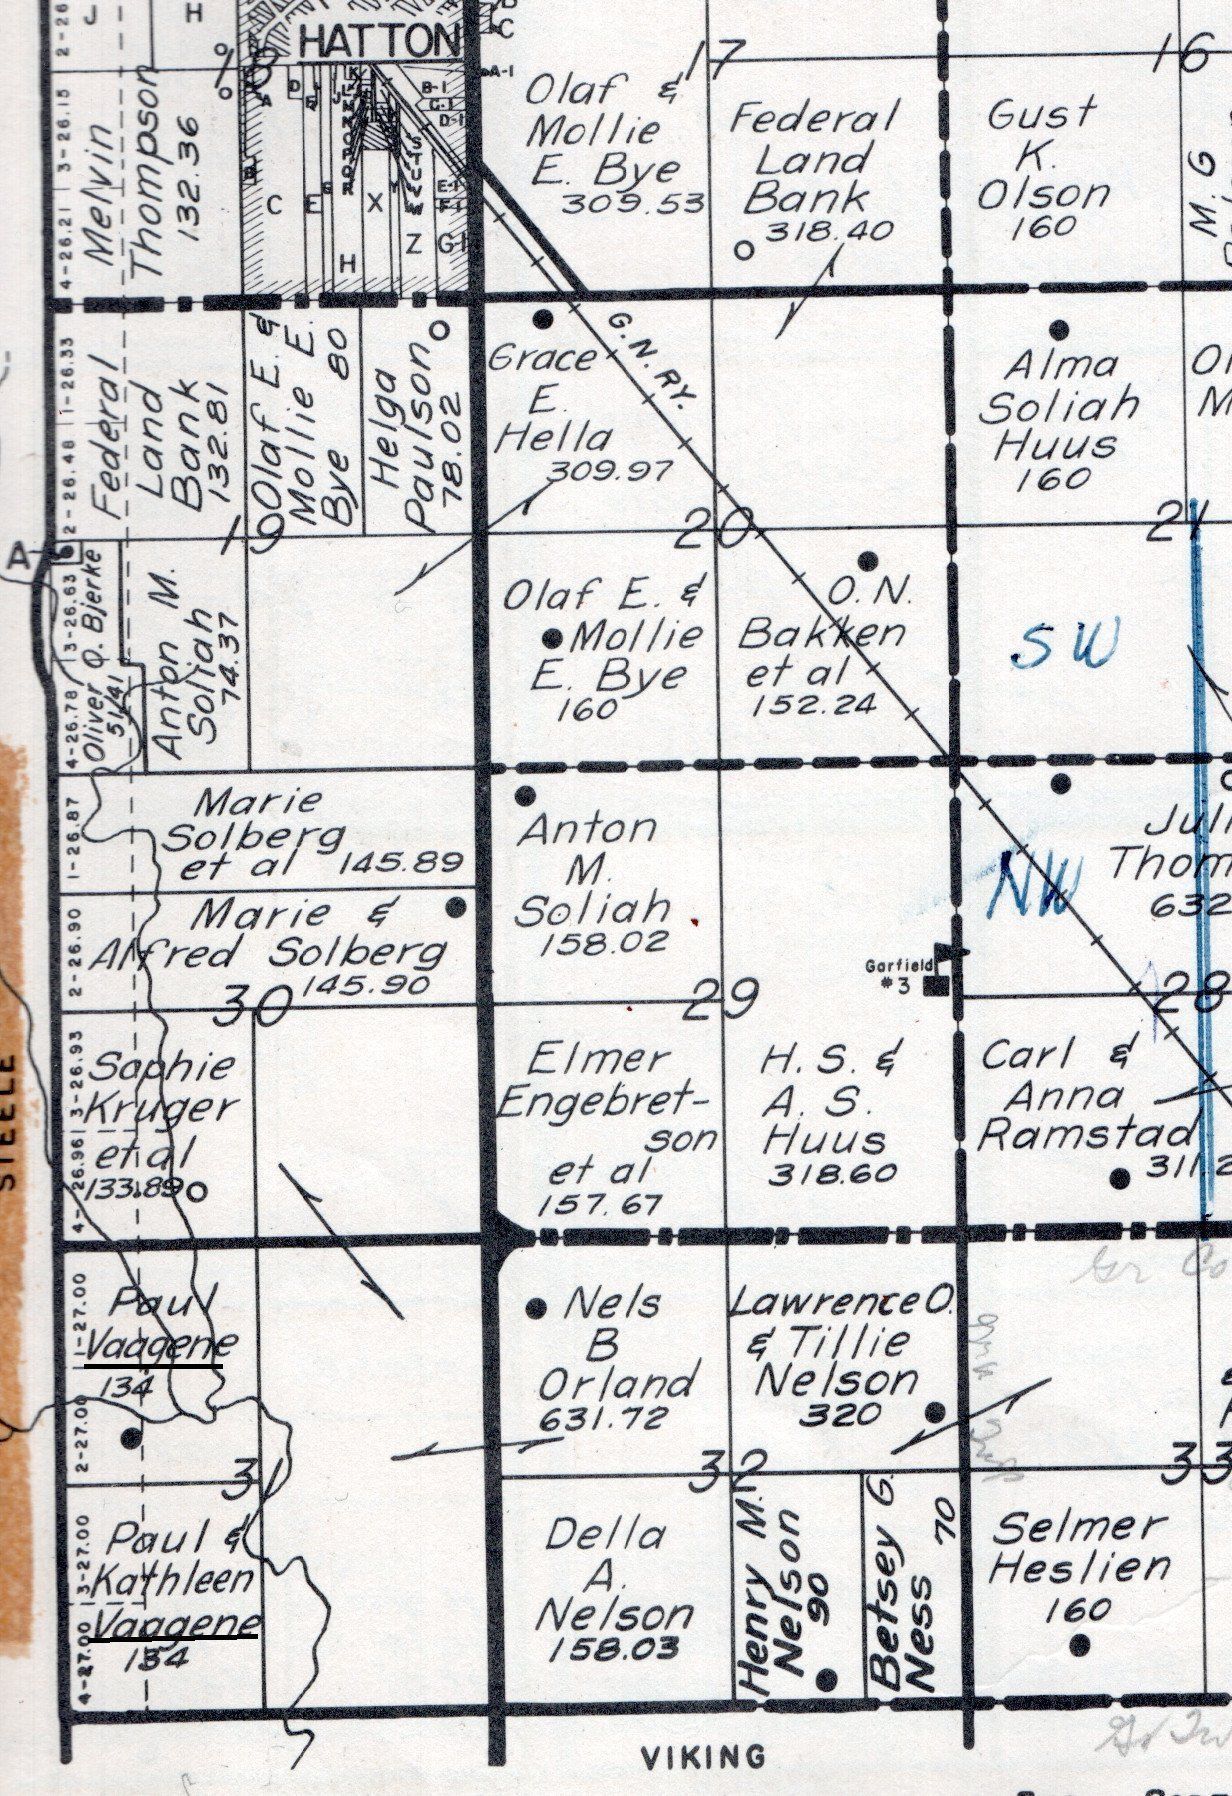 J
H
HATTON
C
A-1
17
16
18
2-26
3-26.15
4-26.21
Melvin
Thompson
132.36
A
D
K
B-1
C-1
D-1
E-1
F-1
G-1
C
E
G
H
X
Y
Z
S
T
U
V
W
Olaf &
Mollie
E. Bye
309.53
Federal
Land
Bank
318.40
Gust
K.
Olson
160
M. G
1-26.33
2-26.48
Federal
Land
Bank
132.81
Olaf E. &
Mollie E.
Bye 80
Helga
Paulson
78.02
Grace
E.
Hella
309.97
G. N. RY.
Alma
Soliah
Huus
160
Ol
M
19
20
21
A
3-26.63
4-26.78
Oliver O. Bjerke
51.41
Anton M.
Soliah
74.37
Olaf E. &
Mollie
E. Bye
160
O. N.
Bakken
et al
152.24
SW
1-26.87
Marie
Solberg
et al 145.89
2-26.90
Marie &
Alfred Solberg
145.90
Anton
M.
Soliah
158.02
Garfield
#3
NW
Juli
Thom
632
30
29
28
3-26.93
4-26.96
Sophie
Kruger
et al
133.89
Elmer
Engebret-
son
et al
157.67
H. S. &
A. S.
Huus
318.60
Carl &
Anna
Ramstad
311.2
STEELE
1-27.00
2-27.00
Paul
Vaagene
134
Nels
B
Orland
631.72
Lawrence O.
& Tillie
Nelson
320
31
32
33
3-27.00
4-27.00
Paul &
Kathleen
Vaagene
134
Della
A.
Nelson
158.03
Henry M.
Nelson
90
Betsey G.
Ness 70
Selmer
Heslien
160
VIKING